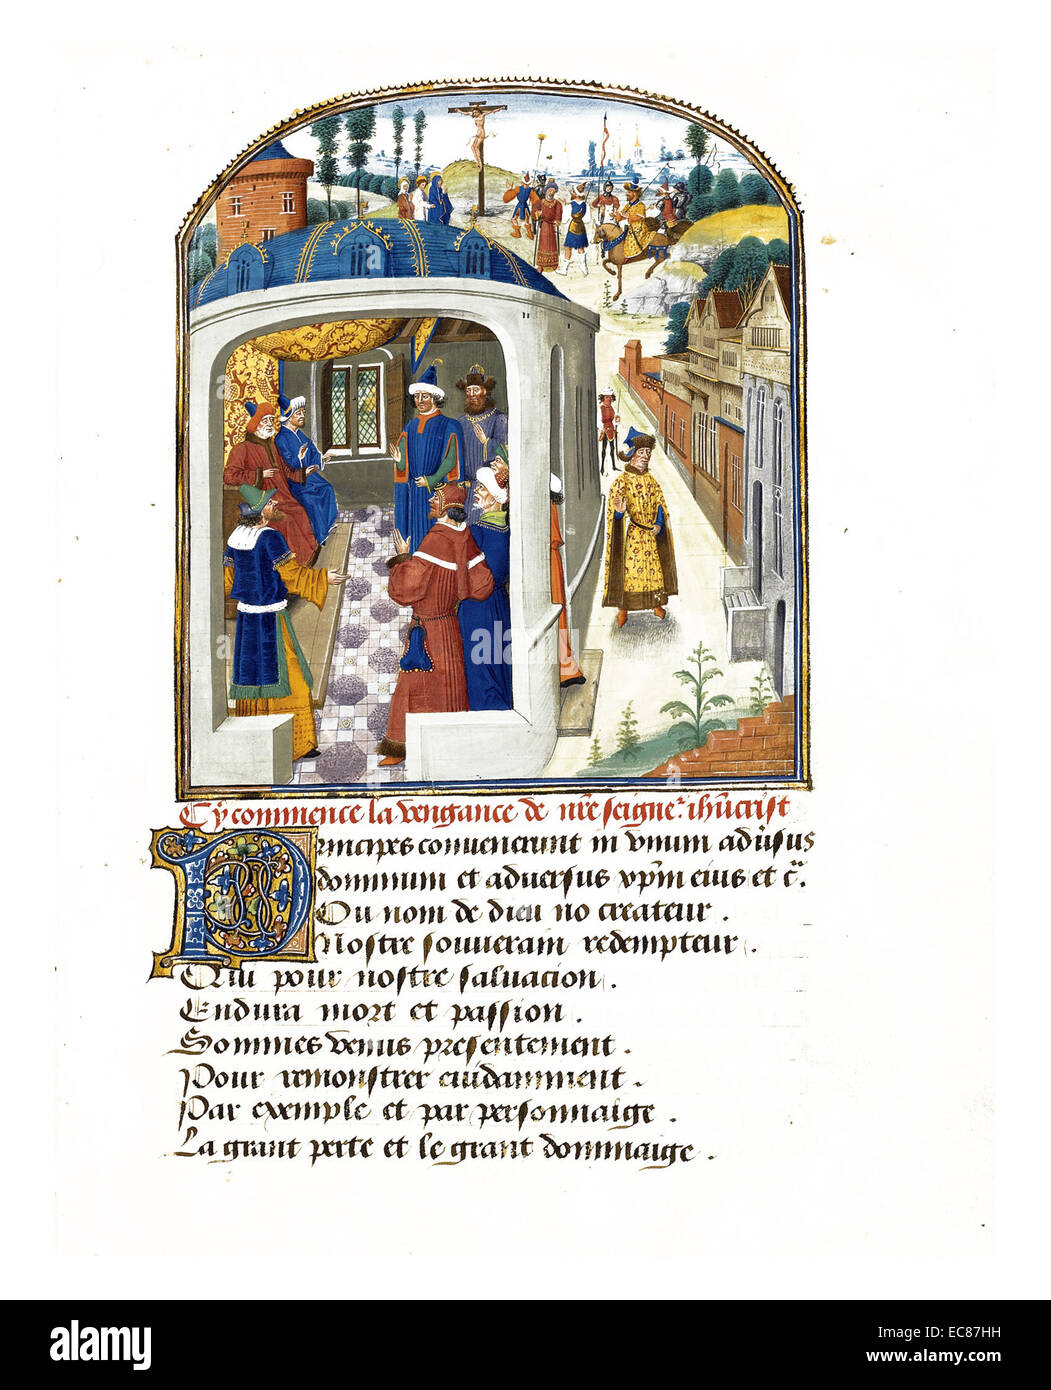 Cy commence la vengance de nr̄e seignẽ. ihūcrist
Principes convenerunt in vnum adũsus
dominum et adversus xp̄m eius et c̃.
Ou nom de dieu no createur.
Nostre souverain redempteur.
Qui pour nostre saluacion.
Endura mort et passion.
Sommes venus presentement.
Pour remonstrer euidamment.
Par exemple et par personnaige.
La grant perte et le grant dommaige.
alamy
alamy stock photo
EC87HH
www.alamy.com